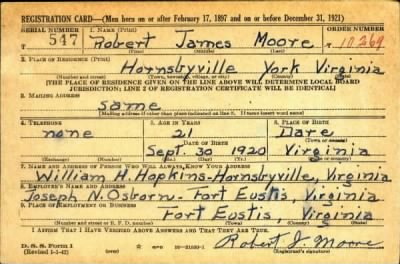 REGISTRATION CARD—(Men born on or after February 17, 1897 and on or before December 31, 1921)
SERIAL NUMBER 1. NAME (Print) ORDER NUMBER
547 Robert James Moore 10,269
(First) (Middle) (Last)
2. PLACE OF RESIDENCE (Print)
Hornsbyville York Virginia
(Number and street) (Town, township, village, or city) (County) (State)
[THE PLACE OF RESIDENCE GIVEN ON THE LINE ABOVE WILL DETERMINE LOCAL BOARD
JURISDICTION; LINE 2 OF REGISTRATION CERTIFICATE WILL BE IDENTICAL]
3. MAILING ADDRESS
same
[Mailing address if other than place indicated on line 2. If same insert word same]
4. TELEPHONE 5. AGE IN YEARS 6. PLACE OF BIRTH
none 21 Dare
DATE OF BIRTH (Town or county)
Sept. 30 1920 Virginia
(Exchange) (Number) (Mo.) (Day) (Yr.) (State or country)
7. NAME AND ADDRESS OF PERSON WHO WILL ALWAYS KNOW YOUR ADDRESS
William H. Hopkins-Hornsbyville, Virginia
8. EMPLOYER'S NAME AND ADDRESS
Joseph N. Osborn- Fort Eustis, Virginia
9. PLACE OF EMPLOYMENT OR BUSINESS
Fort Eustis, Virginia
(Number and street or R. F. D. number) (Town) (County) (State)
I AFFIRM THAT I HAVE VERIFIED ABOVE ANSWERS AND THAT THEY ARE TRUE.
D. S. S. Form 1
(Revised 1-1-42) (over) 16—21630-1 Robert J. Moore
(Registrant's signature)